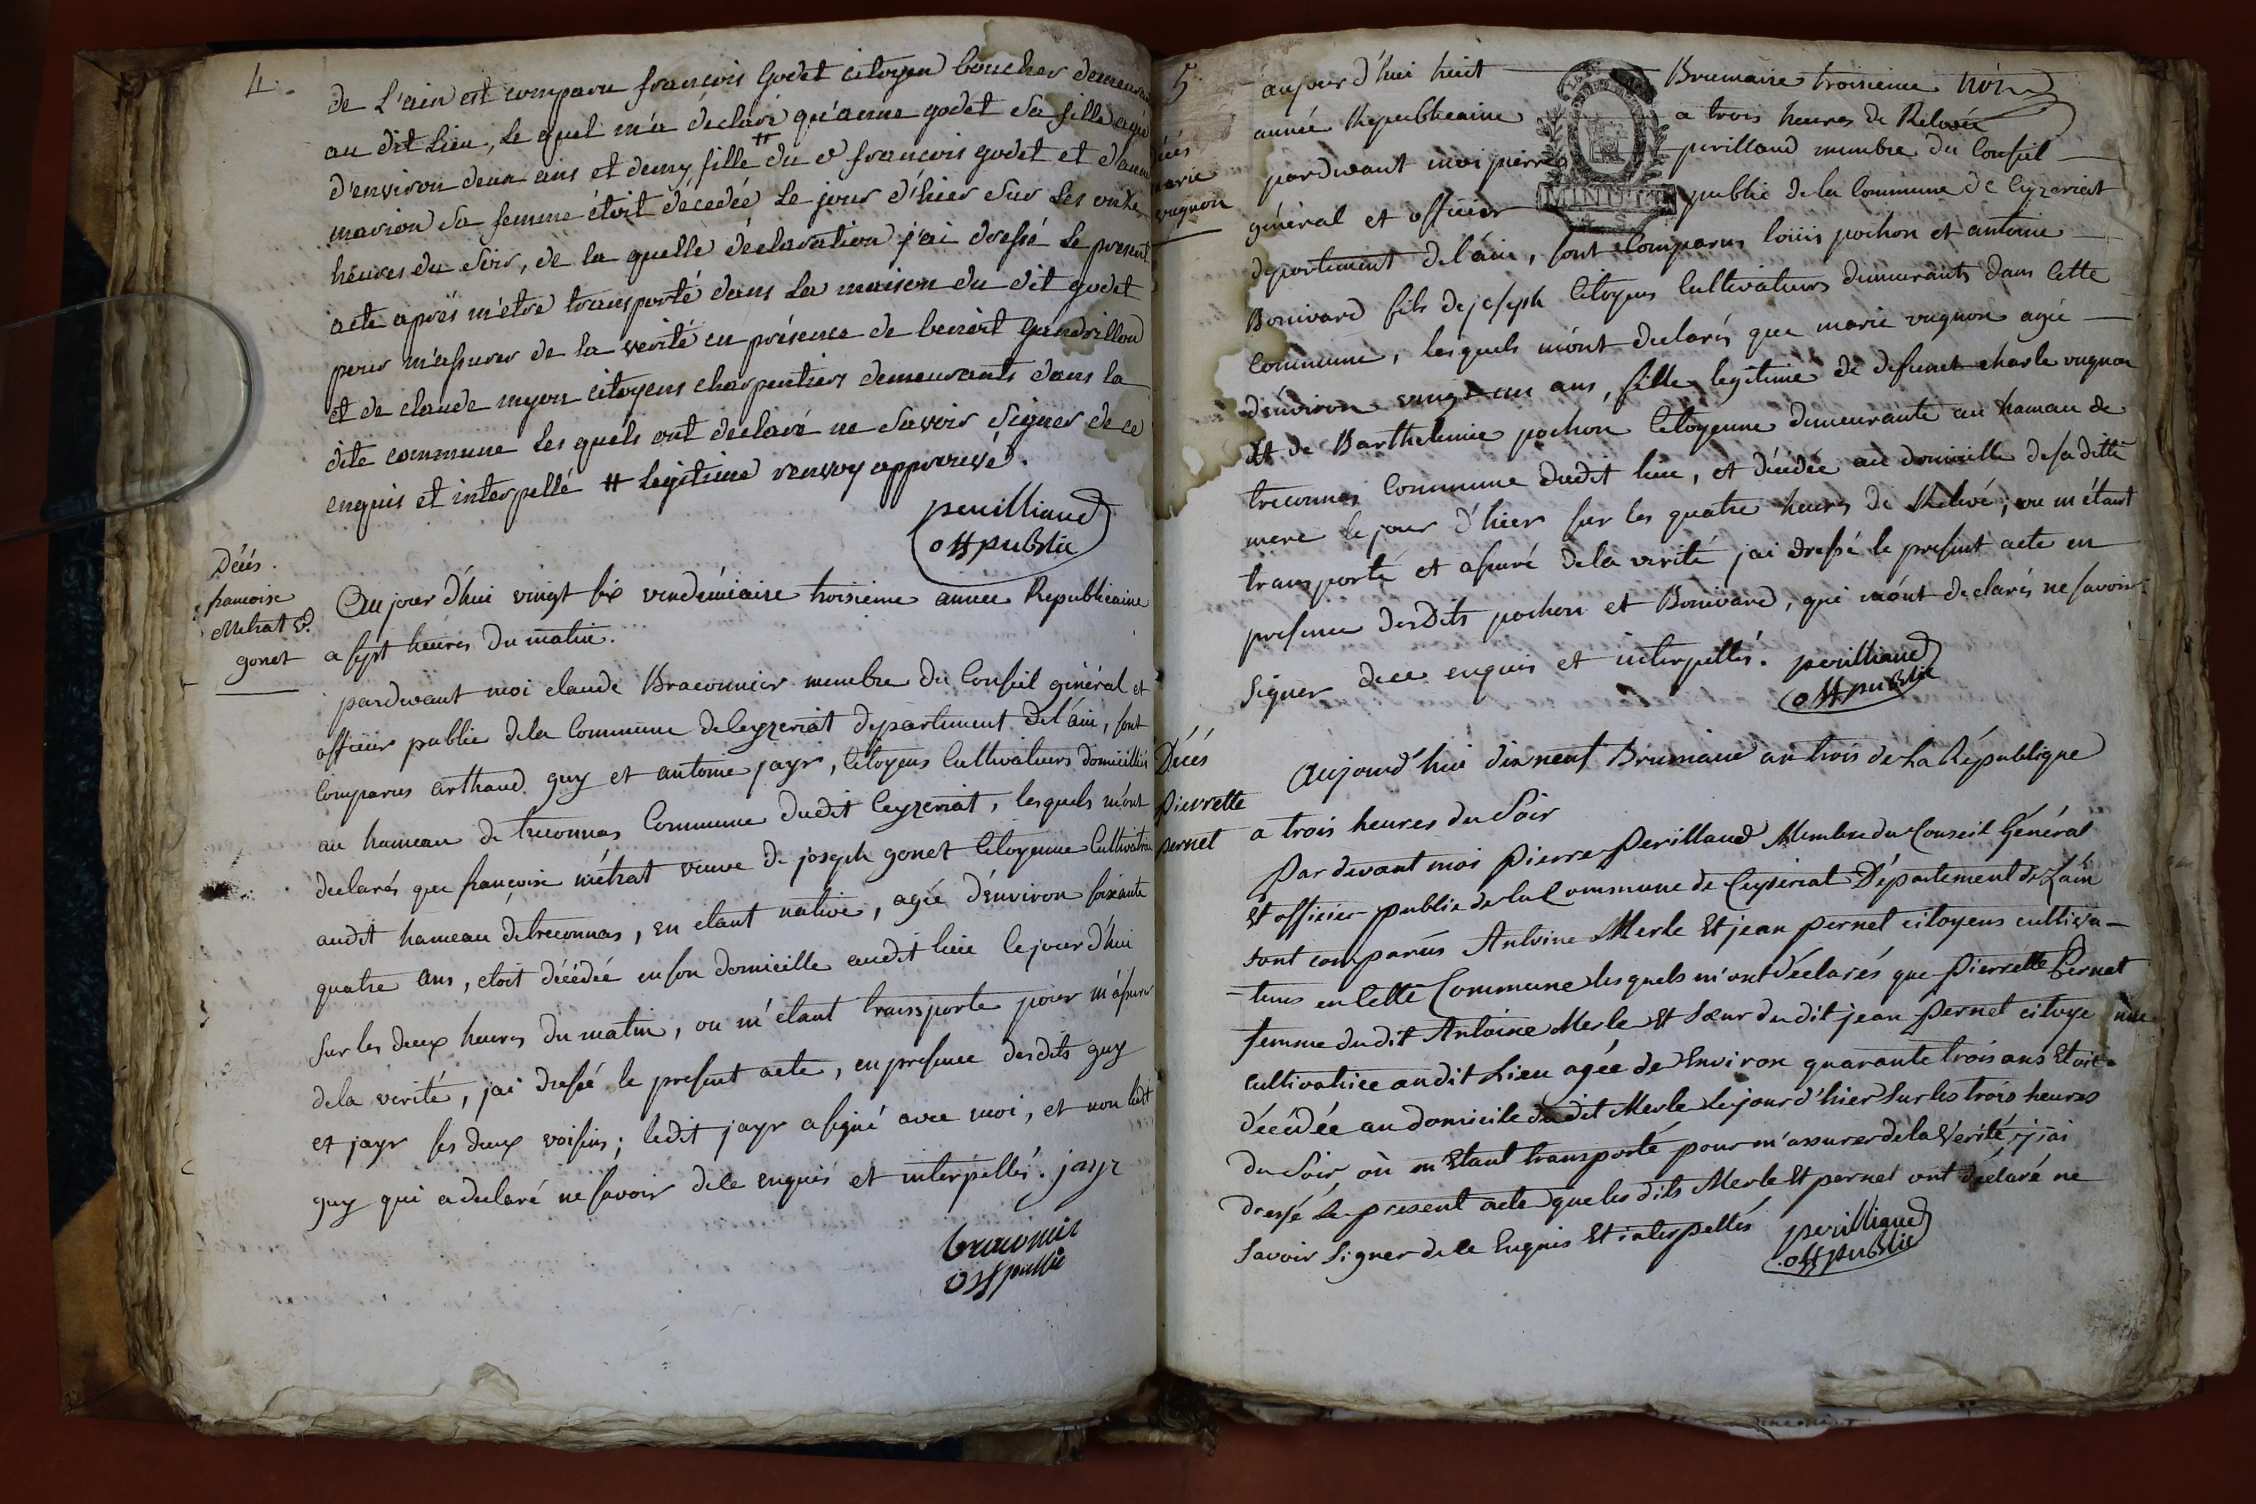 4.
de L'ain est comparu françois Godet citoyen boucher demeurant
au dit Lieu, le quel m'a déclaré qu'anne godet sa fille agée
d'environ deux ans et demy fille # du d françois godet et d'anne
marion sa femme étoit décedée le jour d'hier sur les onze
heures du soir, de la quelle déclaration j'ai dressé le present
acte aprés m'etre transporté dans la maison du dit godet
pour m'assurer de la verité en présence de benoit Gandrillon
et de claude myon citoyens charpentiers demeurants dans la
dite commune les quels ont declaré ne savoir signer de ce
enquis et interpellé # legitime renvoy approuvé.
perilliaud
off publie
Décés.
francoise
Metrat vd.
gonet
Aujourd'hui vingt six vendémiaire troisieme année Republicaine
a sept heures du matin.
pardevant moi claude Braconnier membre du Conseil général et
officier public dela Commune de Ceyzeriat departement de l'ain, sont
Comparus arthaud guy et antoine jayr, Citoyens Cultivateurs domicilliés
au hameau de treconnas Commune dudit Ceyzeriat, lesquels m'ont
declarés que françoise métrat veuve de joseph gonet Citoyenne Cultivatrice
audit hameau de treconnas, en etant native, agée d'environ soixante
quatre ans, etoit décédée en son domicille audit lieu le jour d'hui
sur les deux heures du matin, ou m'étant transporte pour m'assurer
dela verité, j'ai dressé le present acte, en presence desdits guy
et jayr ses deux voisins; ledit jayr a signé avec moi, et non ledit
guy qui a declaré ne savoir de ce enquis et interpellés. jayr
braconnier
off publie
5
Décés
marie
vugnon
aujourd'hui huit Brumaire troisieme
année Republicaine a trois heures de Relevée
pardevant moi pierre perilliaud membre du Conseil
général et officier public de la Commune de Ceyzeriat
MINUTE
departement de l'ain, sont Comparus loüis pochon et antoine
Bonivard fils de joseph Citoyens Cultivateurs demeurants dans Cette
Commune, lesquels m'ont declarés que marie vugnon agée
d'environ vingt un ans, fille legitime de defunct charle vugnon
et de Barthelemie pochon Citoyenne demeurante au hameau de
treconnas Commune dudit lieu, et décédée au domicille de sa ditte
mere le jour d'hier sur les quatre heures de Relevé; ou m'étant
transporté et assuré dela verité j'ai dressé le present acte en
presence desdits pochon et Bonivard, qui m'ont declarés ne savoir
signer de ce enquis et interpellés. perilliaud
off publie
Décés
Pierrette
pernet
Aujourd'hui dix neuf Brumaire an trois de La République
a trois heures du Soir
Par devant moi Pierre Perilliaud Membre du Conseil Général
Et officier public de la Commune de Ceyseriat Département de L'ain
sont comparus Antoine Merle Et jean pernet citoyens cultiva-
-teurs en Cette Commune lesquels m'ont déclarés que Pierrette Pernet
femme du dit Antoine Merle Et sœur du dit jean Pernet citoyenne
cultivatrice au dit Lieu agée de Environ quarante trois ans Etoit
décédée au domicile du dit Merle le jour d'hier sur les trois heures
du Soir, où m'Etant transporté pour m'assurer de la Verité, j'ai
dressé Le present acte que les dits Merle Et pernet ont déclaré ne
Savoir Signer de Ce Enquis Et interpellés perilliaud
off publie